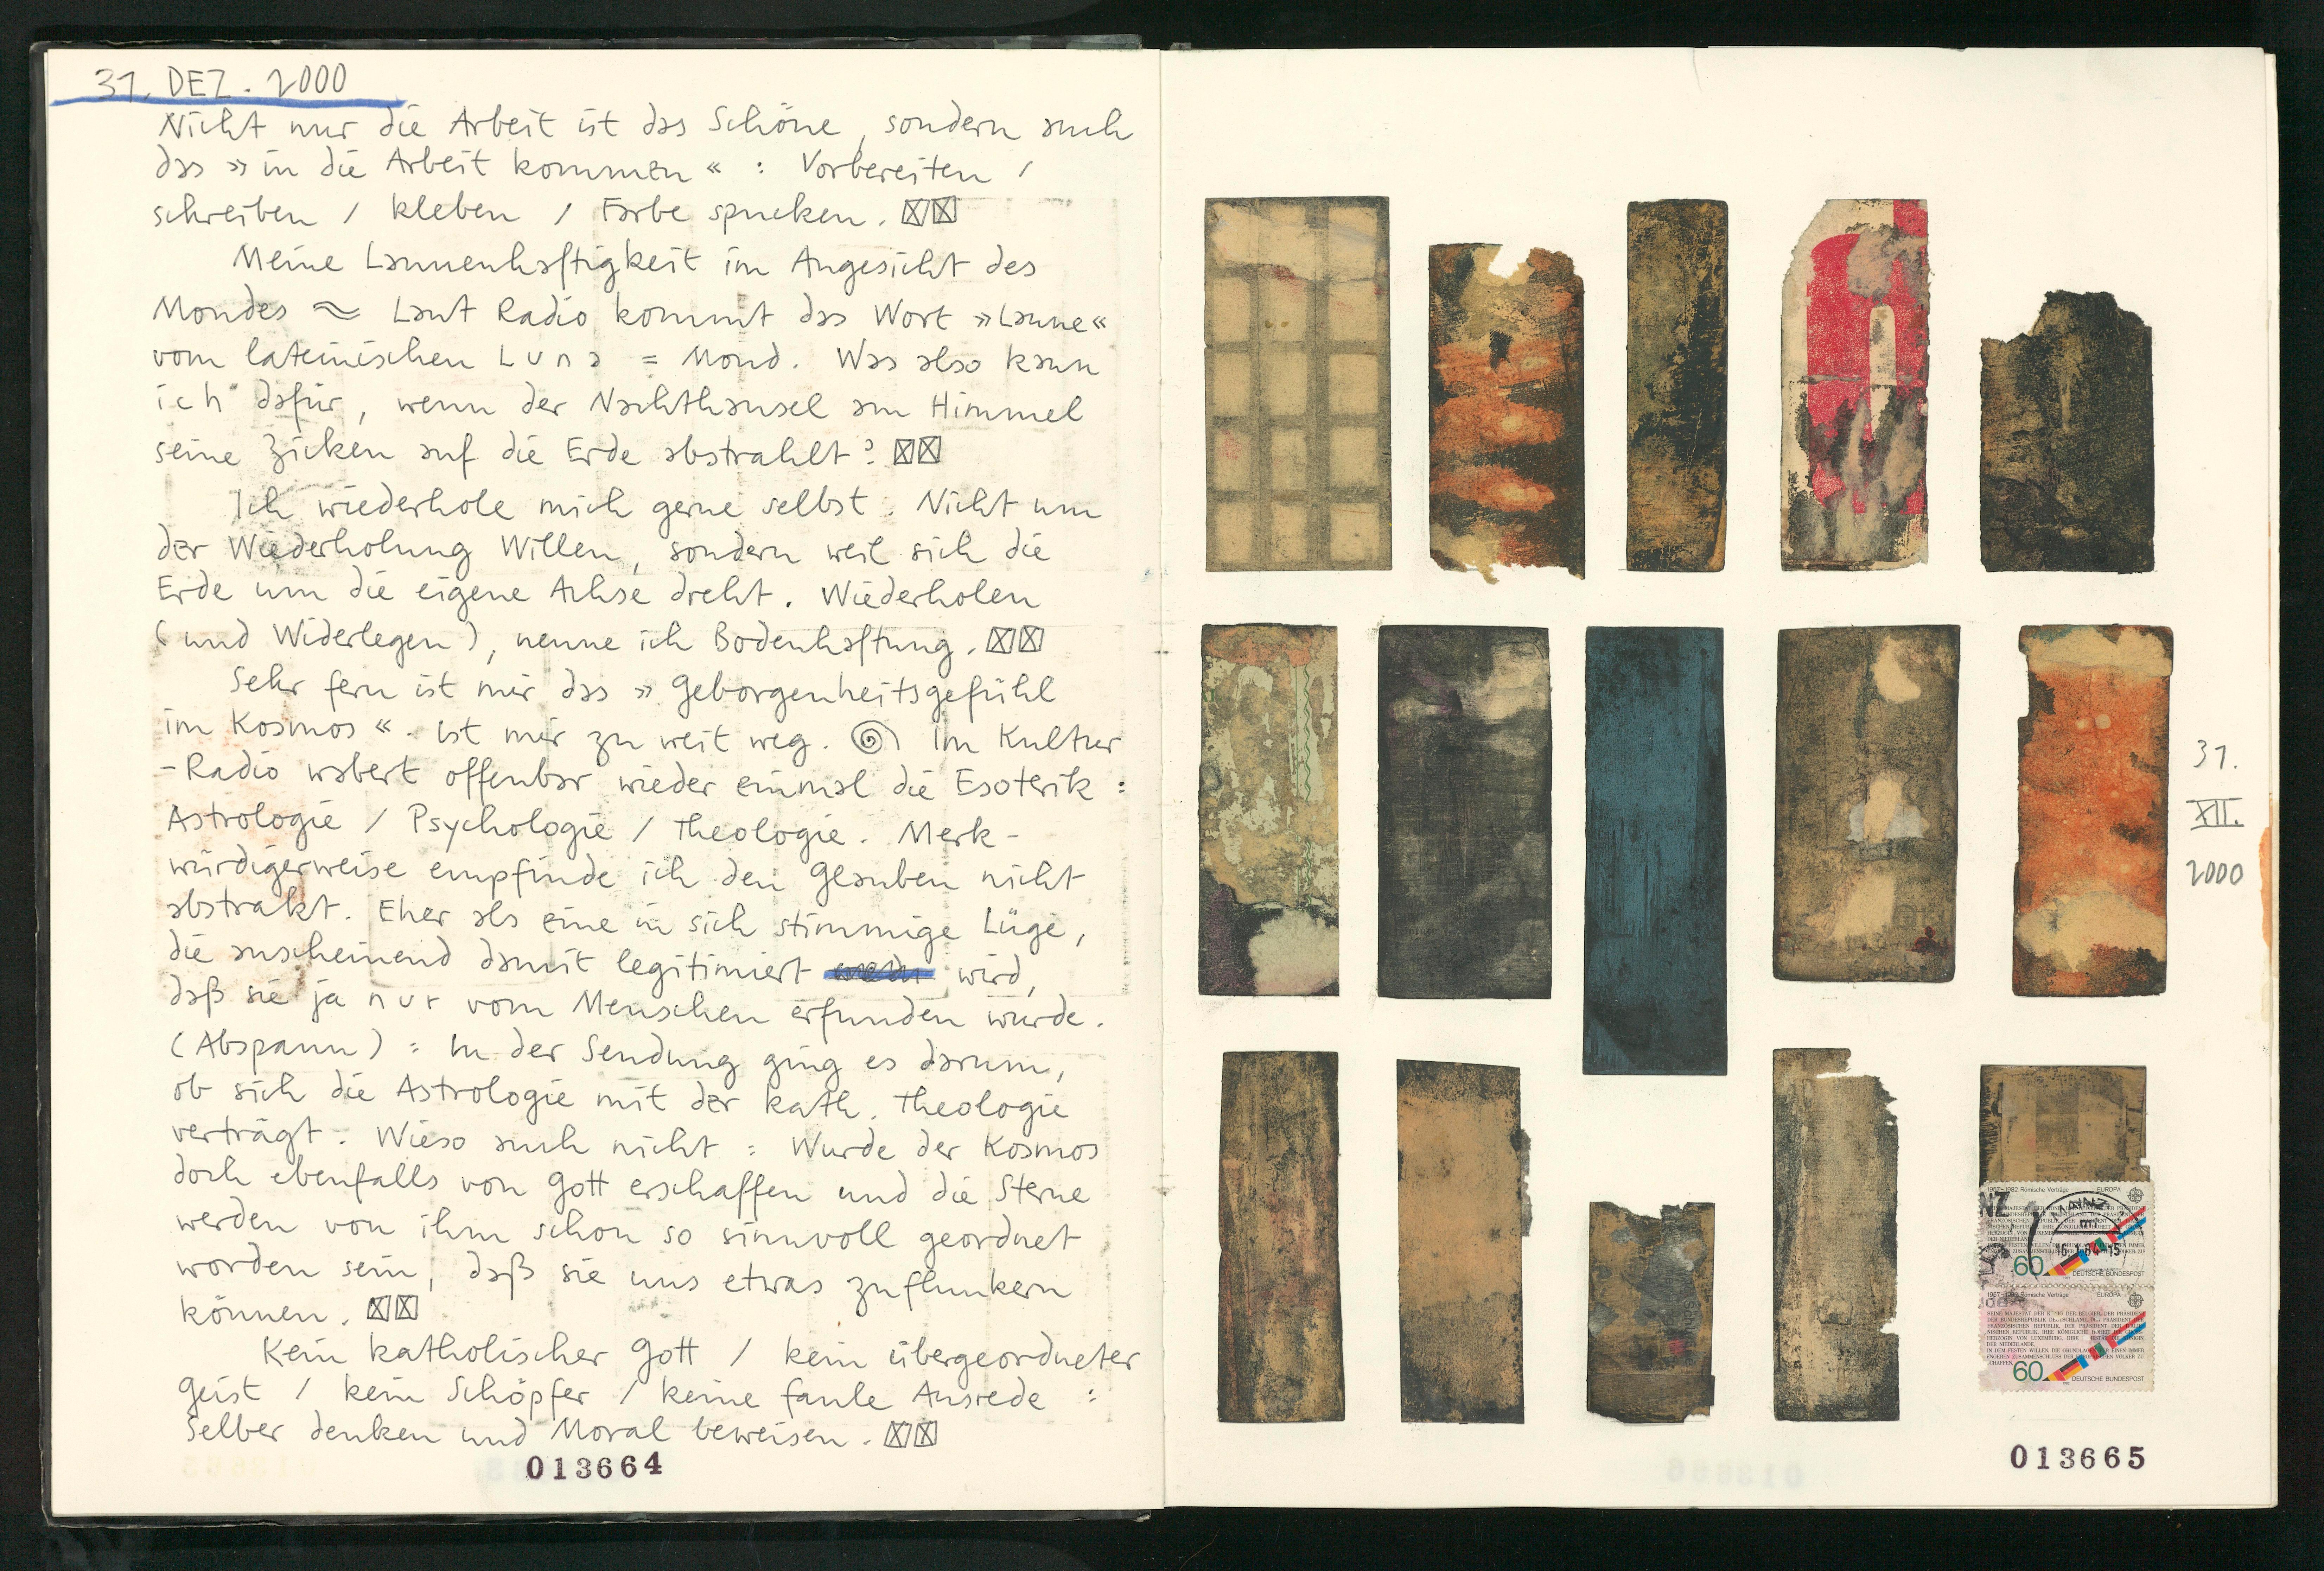 31. DEZ. 2000
Nicht nur die Arbeit ist das Schöne, sondern auch
das »in die Arbeit kommen« : Vorbereiten /
schreiben / kleben / Farbe spucken. ☒☒
Meine Launenhaftigkeit im Angesicht des
Mondes ≈ Laut Radio kommt das Wort »Laune«
vom lateinischen Luna = Mond. Was also kann
ich dafür, wenn der Nachthansel am Himmel
seine Zicken auf die Erde abstrahlt? ☒☒
Ich wiederhole mich gerne selbst. Nicht um
der Wiederholung Willen, sondern weil sich die
Erde um die eigene Achse dreht. Wiederholen
(und Widerlegen), nenne ich Bodenhaftung. ☒☒
Sehr fern ist mir das »Geborgenheitsgefühl
im Kosmos«. Ist mir zu weit weg. Im Kultur
-Radio wabert offenbar wieder einmal die Esoterik :
Astrologie / Psychologie / Theologie. Merk-
würdigerweise empfinde ich den Glauben nicht
abstrakt. Eher als eine in sich stimmige Lüge,
die anscheinend damit legitimiert wird,
daß sie ja nur vom Menschen erfunden wurde.
(Abspann) : In der Sendung ging es darum,
ob sich die Astrologie mit der kath. Theologie
verträgt. Wieso auch nicht : Wurde der Kosmos
doch ebenfalls von Gott erschaffen und die Sterne
werden von ihm schon so sinnvoll geordnet
worden sein, daß sie uns etwas zuflunkern
können. ☒☒
Kein katholischer Gott / kein übergeordneter
Geist / kein Schöpfer / keine faule Ausrede :
Selber denken und Moral beweisen. ☒☒
013664
31.
XII.
2000
1957-1982 Römische Verträge EUROPA
60 DEUTSCHE BUNDESPOST
1957-1982 Römische Verträge EUROPA
60 DEUTSCHE BUNDESPOST
013665